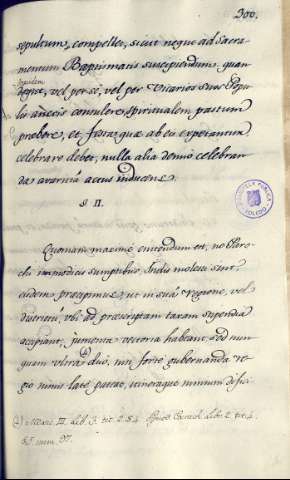 300.
sepulcrum, compellet, sicut neque ad Sacra-
mentum Baptismatis suscipiendum. quan-
doque, vel per se, vel per Vicarios suos Popu-
lis ancois consulere, spiritualem pastum
præbere, et festa, quæ ab eis
celebrare debet, nulla alia denuo celebran-
da avaritiæ actus inducens.
§ II.
Quoniam maxime cavendum est, ne Paro-
chi immodicis sumptibus, Indis molesti sint,
eisdem præcipimus, ut in suâ Regione, vel
districtu, ubi ad præscriptam taxam stipendia
accipiant; jumenta vectoria habeant, sed nun-
quam ultra duo, nisi forte gubernanda re-
gio nimis late pateat, itineraque nimium diffici-
lib. 3. tit. 2. §. 4. lib. 2. tit. 4.
§ 5. num. 97.
BIBLIOTECA PUBLICA
TOLEDO